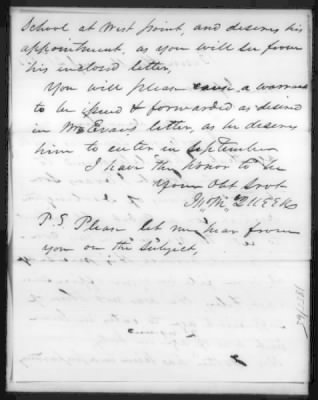 School at West point, and desires his
appointment, as you will see from
his inclosed letter,
You will please cause a warrant
to be issued & forwarded as desired
in Mr Evans letter, as he desires
him to enter in september
I have the honor to be
Your Obt Srvt
P.S Please let me hear from
you on the subject,